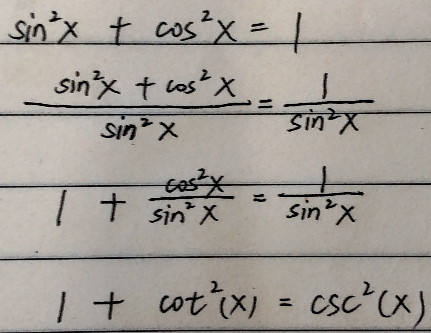 sin²x + cos²x = 1
(sin²x + cos²x)/(sin²x) = 1/(sin²x)
1 + (cos²x)/(sin²x) = 1/(sin²x)
1 + cot²(x) = csc²(x)